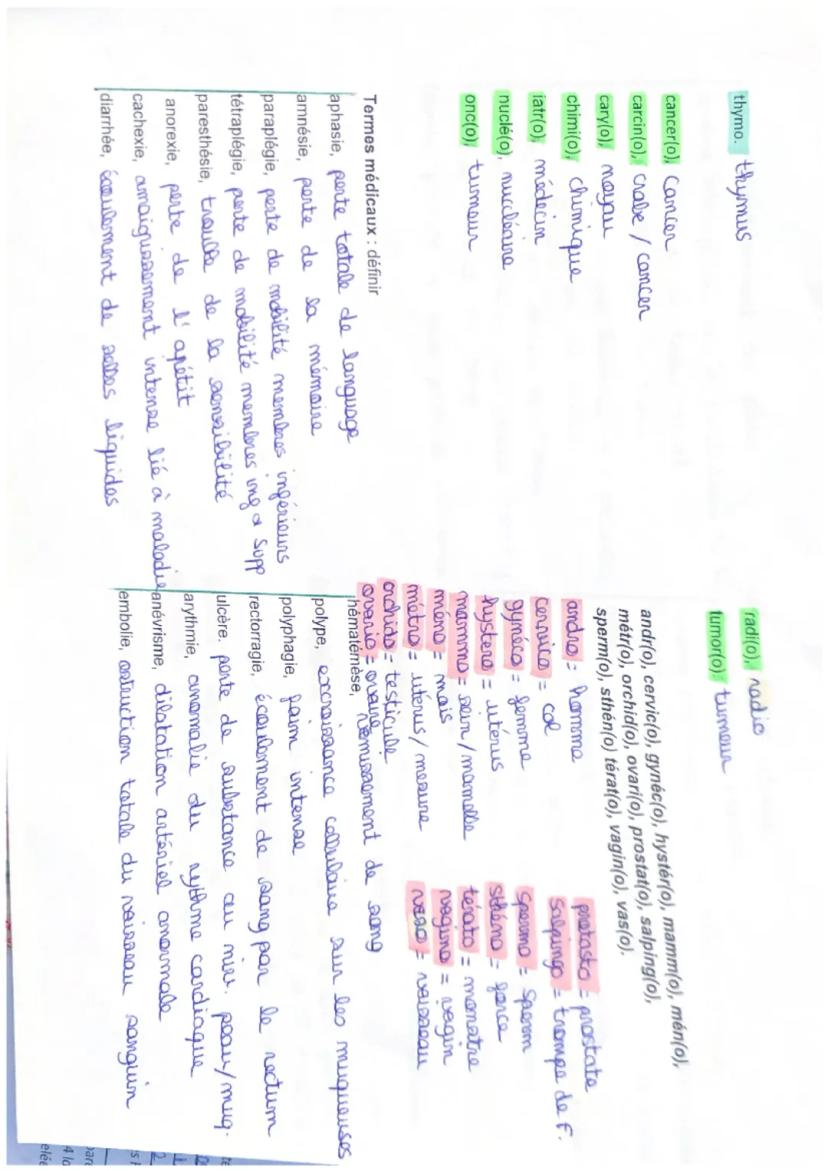 thymo. thymus
cancer(o), cancer
carcin(o), crabe / cancer
cary(o), noyau
chimi(o), chimique
iatr(o), médecin
nuclé(o), nucléaire
onc(o), tumeur
radi(o), radio
tumor(o) tumeur
andr(o), cervic(o), gynéc(o), hystér(o), mamm(o), mén(o),
métr(o), orchid(o), ovari(o), prostat(o), salping(o),
sperm(o), sthén(o) térat(o), vagin(o), vas(o).
andro = homme
cervico = col
gynéco = femme
hystero = utérus
mammo = sein / mamelle
méno = mois
métro = utérus / mesure
orchido = testicule
ovario = ovaire
protasto = prostate
salpingo = trompe de F.
spermo = sperm
sthéno = force
térato = monstre
vagino = vagin
vaso = vaisseau
Termes médicaux : définir
aphasie, perte totale de language
amnésie, perte de la mémoire
paraplégie, perte de mobilité membres inférieurs
tétraplégie, perte de mobilité membres inf & supp
paresthésie, trouble de la sensibilité
anorexie, perte de l'apétit
cachexie, amaigussement intense lié à maladie
diarrhée, écoulement de selles liquides
hématémèse, vomissement de sang
polype, excroissance cellulaire sur les muqueuses
polyphagie, faim intense
rectorragie, écoulement de sang par le rectum
ulcère, perte de substance au niv. peau/muq.
arythmie, anomalie du rythme cardiaque
anévrisme, dilatation artériel anormale
embolie, obstruction totale du vaisseau sanguin